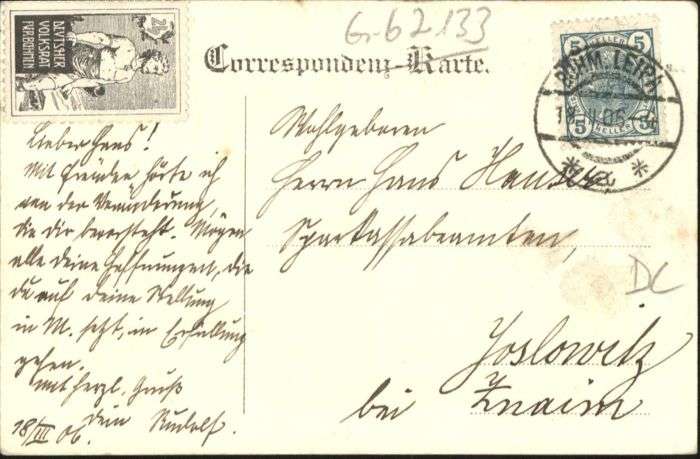 DEVTSCHER
VOLKSRAT
FÜR BÖHMEN
2H
Gr-6 2133
Correspondenz-Karte.
5 5
BÖHM. LEIPA
HELLER
5 5
Lieber Hans!
Mit Freuden hörte ich
von der Veränderung,
die dir bevorsteht. Mögen
alle deine Hoffnungen, die
du auf deine Stellung
in M. setzt, in Erfüllung
gehen.
Mit herzl. Gruß
dein Rudolf.
18/III 06.
Wohlgeboren
Herrn Hans
Sparkassabeamten,
DC
Joslowitz
bei Znaim